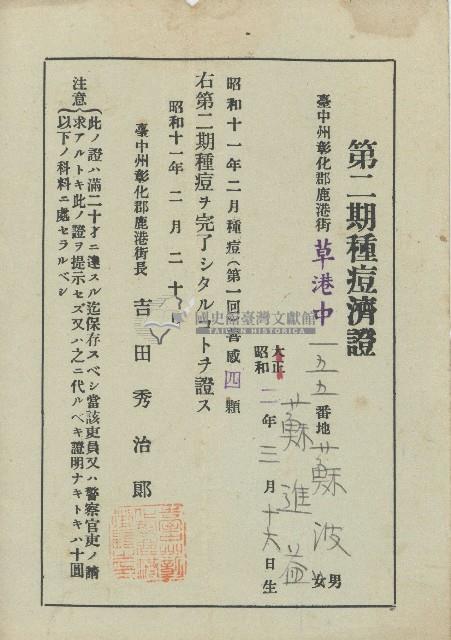 第二期種痘濟證
臺中州彰化郡鹿港街 草港中 一五五番地 蘇波 男
女
蘇進益
大正
昭和 二年三月十六日生
昭和十一年二月種痘（第一回）善感 四 顆
右第二期種痘ヲ完了シタルコトヲ證ス
昭和十一年 二月二十
臺中州彰化郡鹿港街長 吉田秀治郎
注意
此ノ證ハ滿二十才ニ達スル迄保存スベシ當該吏員又ハ警察官吏ノ請
求アルトキ此ノ證ヲ提示セズ又ハ之ニ代ルベキ證明ナキトキハ十圓
以下ノ科料ニ處セラルベシ
國史館臺灣文獻館
TAIWAN HISTORICA